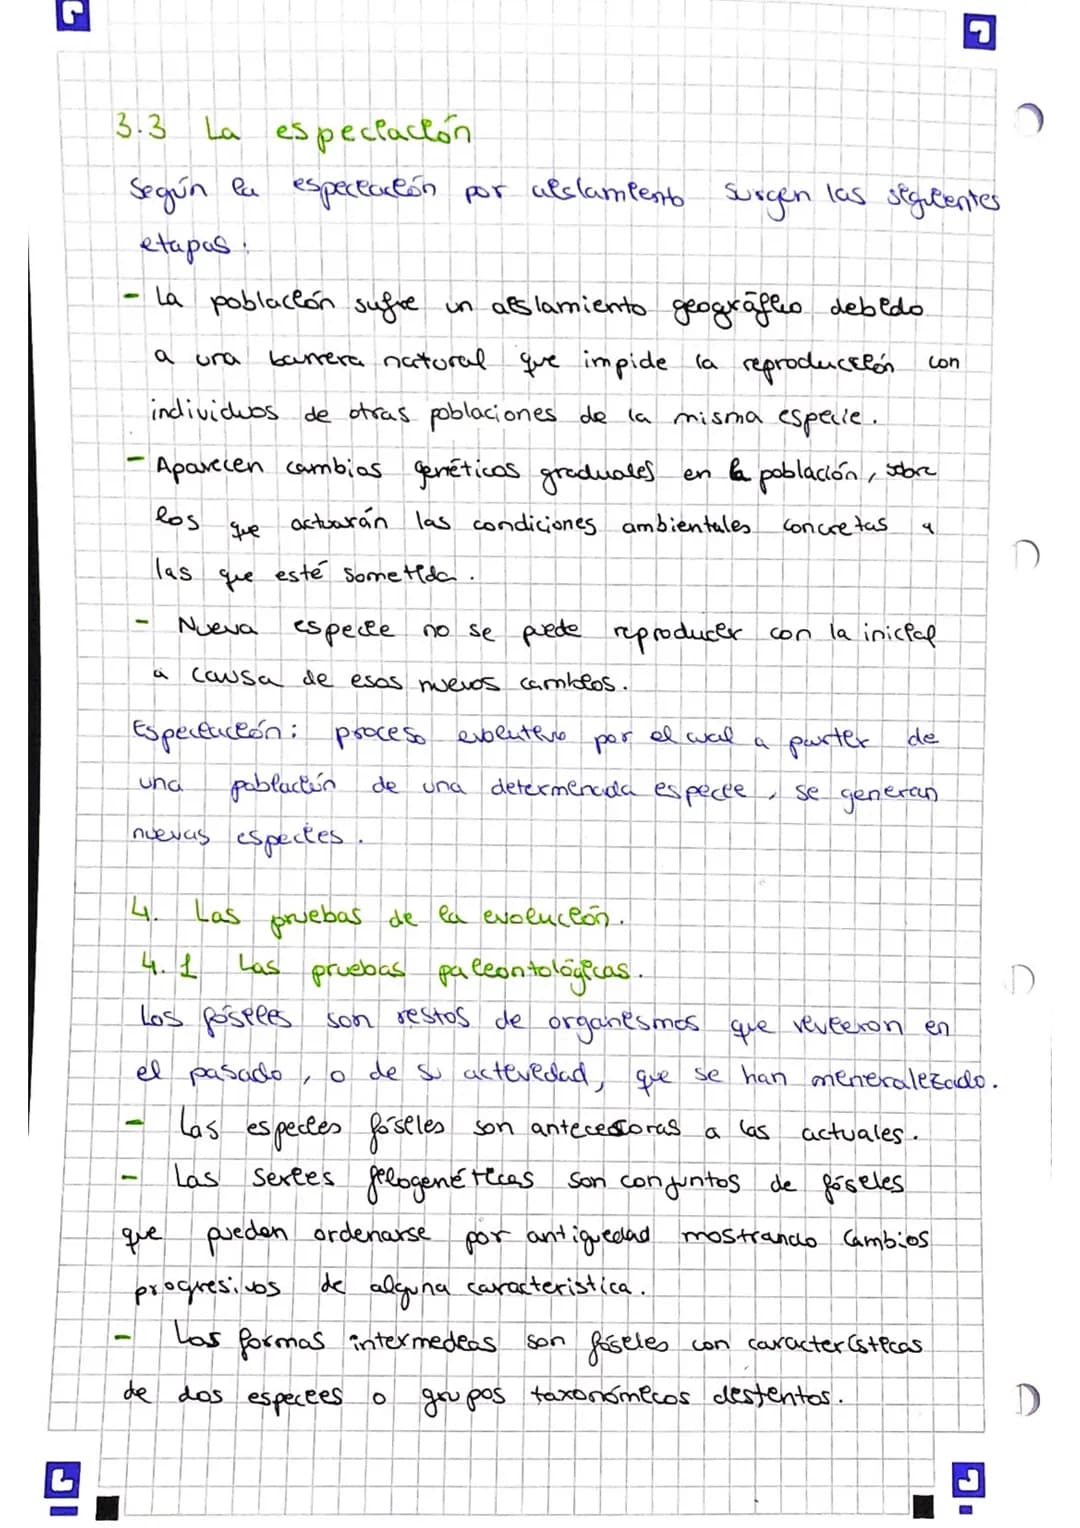 3.3 La especiación
Según la especiación por aislamiento surgen las siguientes
etapas:
- La población sufre un aislamiento geográfico debido
a una barrera natural que impide la reproducción con
individuos de otras poblaciones de la misma especie.
- Aparecen cambios genéticos graduales en la población, sobre
los que actuarán las condiciones ambientales concretas a
las que esté sometida.
- Nueva especie no se puede reproducir con la inicial
a causa de esos nuevos cambios.
Especiación: proceso evolutivo por el cual a partir de
una población de una determinada especie, se generan
nuevas especies.
4. Las pruebas de la evolución.
4.1 Las pruebas paleontológicas.
Los fósiles son restos de organismos que vivieron en
el pasado, o de su actividad, que se han mineralizado.
- Las especies fósiles son antecesoras a las actuales.
- Las series filogenéticas son conjuntos de fósiles
que pueden ordenarse por antiguedad mostrando cambios
progresivos de alguna caracteristica.
- Las formas intermedias son fósiles con características
de dos especies o grupos taxonómicos distintos.